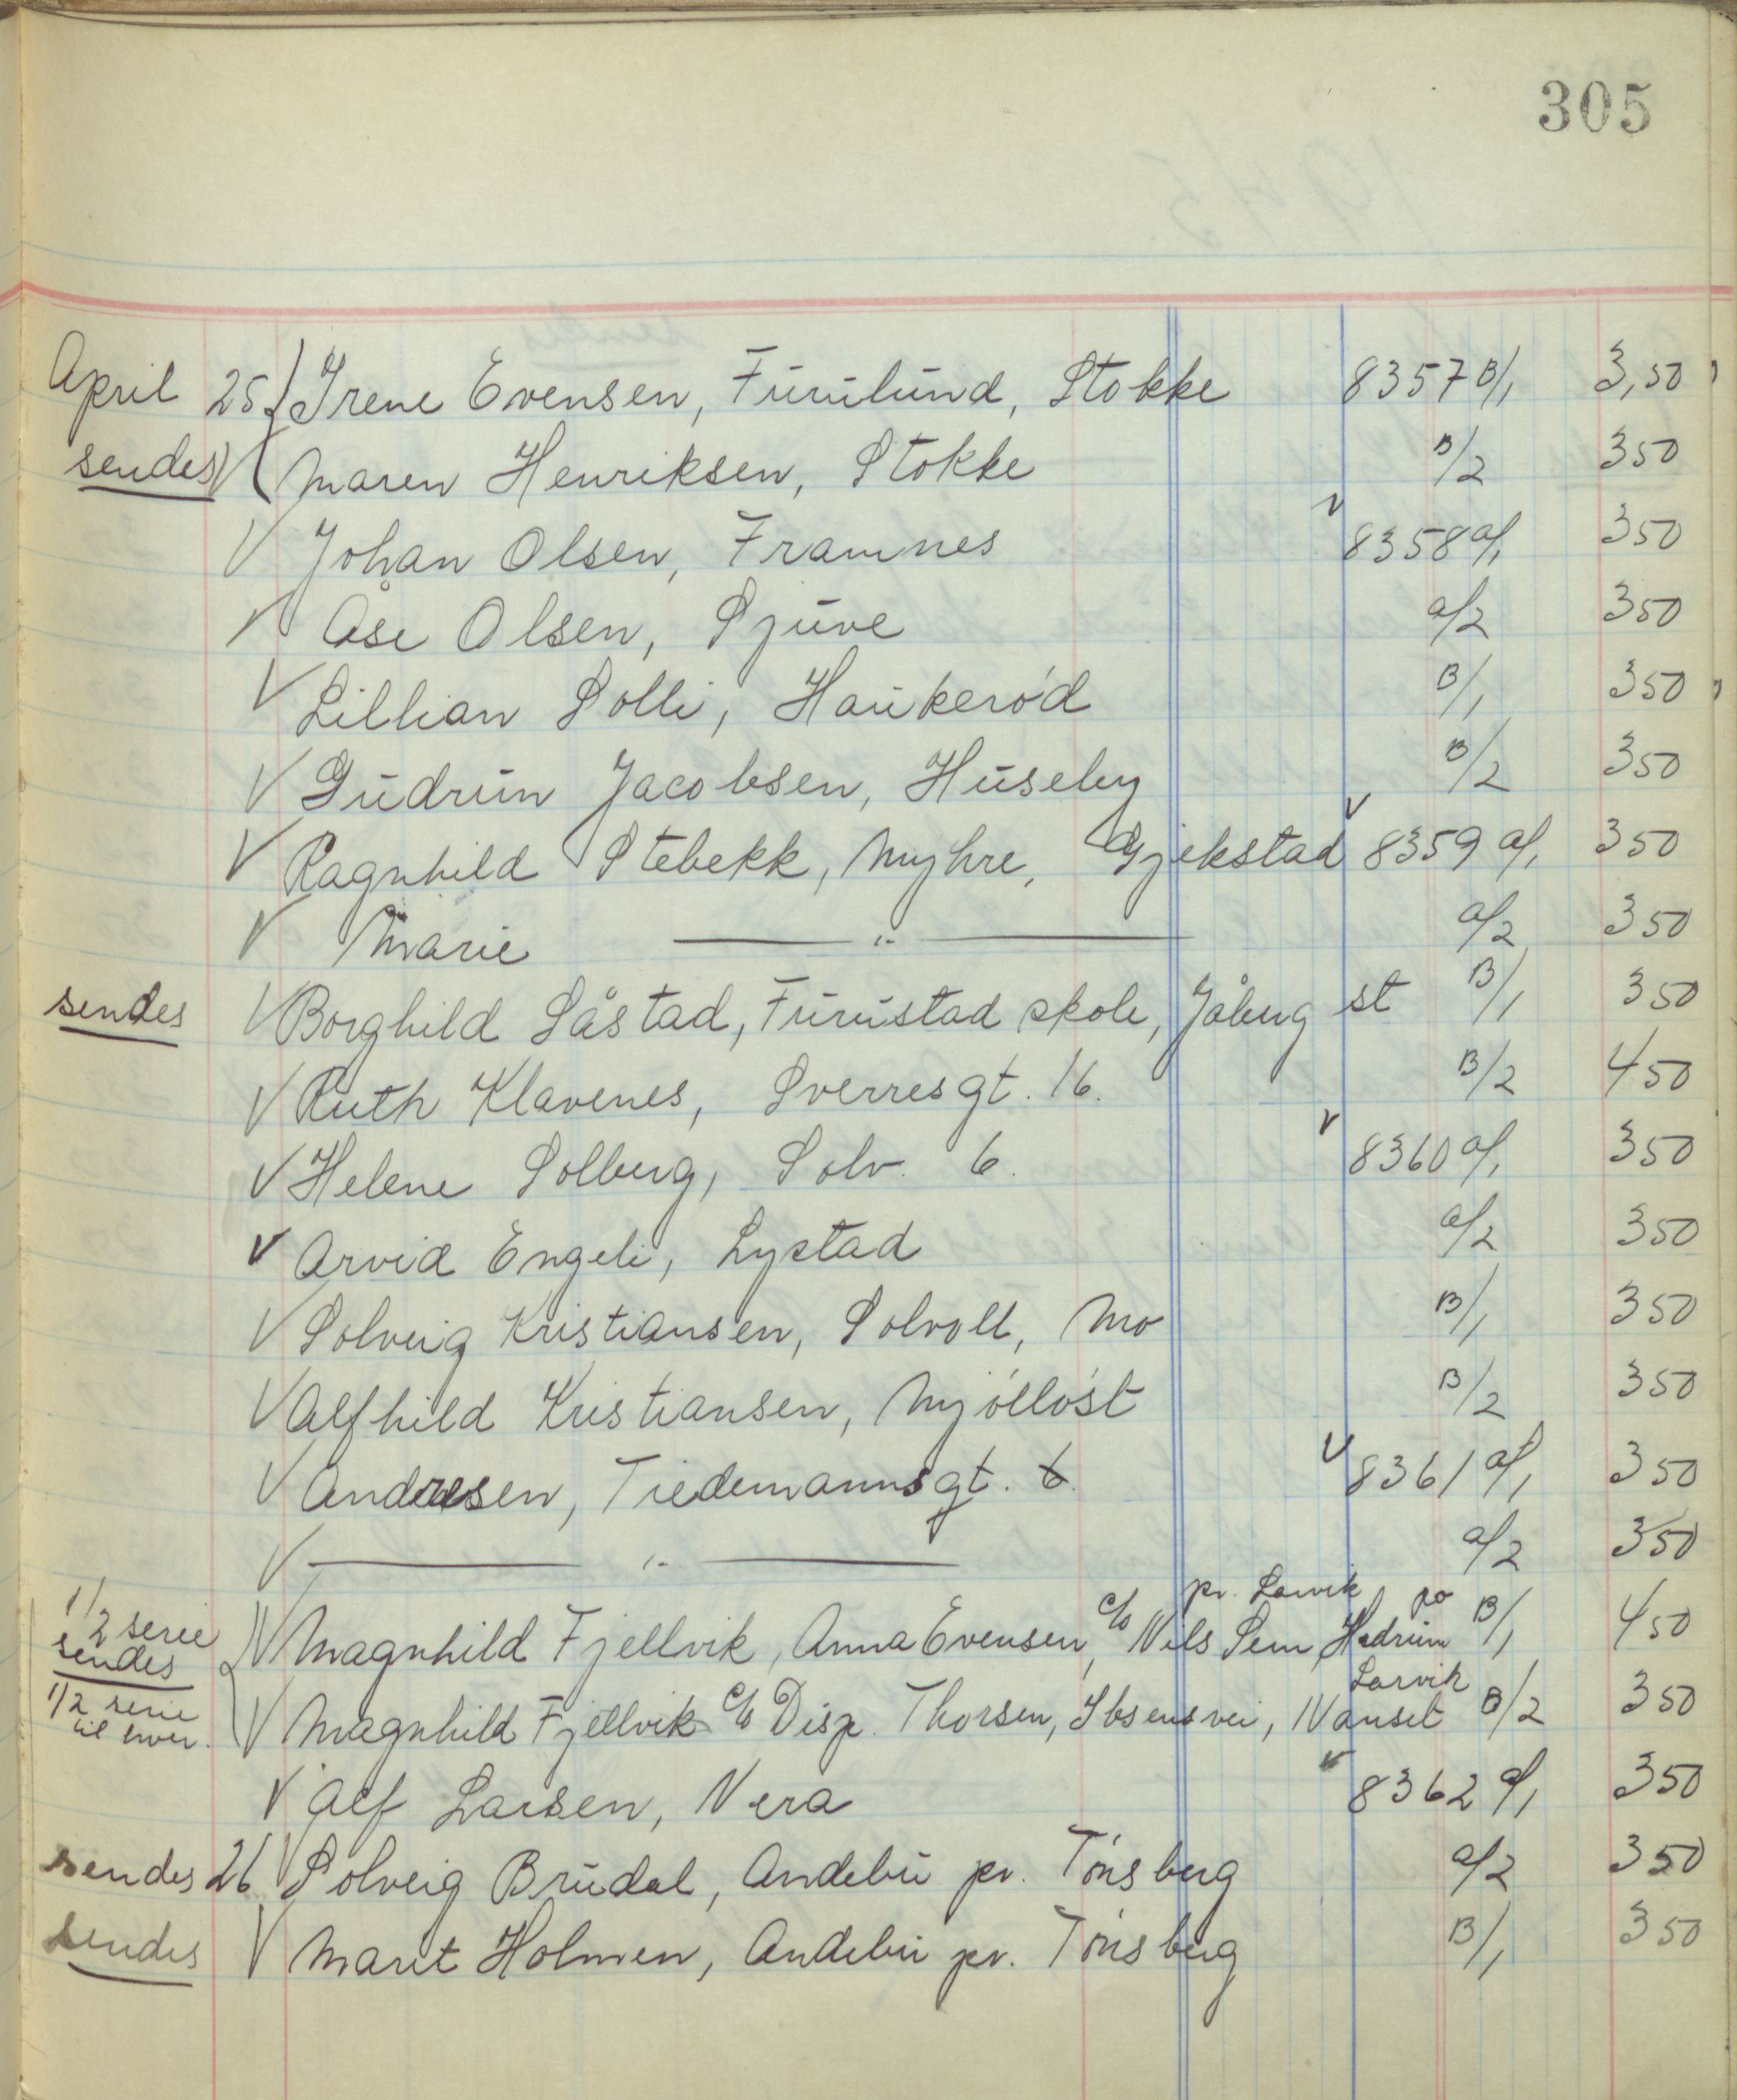 305
April 25 Irene Evensen, Furulund, Stokke 8357 B/1 3,50
sendes Maren Henriksen, Stokke B/2 350
Johan Olsen, Framnes 8358 a/1 350
Åse Olsen, Sjuve a/2 350
Lillian Solli, Haukerød B/1 350
Gudrun Jacobsen, Huseby B/2 350
Ragnhild Stebekk, Myhre, Gjekstad 8359 a/1 350
Marie —— " —— a/2 350
sendes Borghild Såstad, Furustad skole, Jåberg st B/1 350
Ruth Klavenes, Sverresgt. 16. B/2 450
Helene Solberg, Solv. 6. 8360 a/1 350
Arvid Engeli, Lystad a/2 350
Solveig Kristiansen, Solvoll, Mo B/1 350
Alfhild Kristiansen, Mjølløst B/2 350
Andresen, Tiedemannsgt. 6. 8361 a/1 350
—— " —— a/2 350
pr. Larvik po
1/2 serie sendes Magnhild Fjellvik, Anna Evensen, c/o Nils Sem, Hedrum B/1 450
Larvik
1/2 serie til hver. Magnhild Fjellvik c/o Disp. Thorsen, Ibsensvei, Nanset B/2 350
Alf Larsen, Vera 8362 a/1 350
sendes 26 Solveig Brudal, Andebu pr. Tønsberg a/2 350
sendes Marit Holmen, Andebu pr. Tønsberg B/1 350